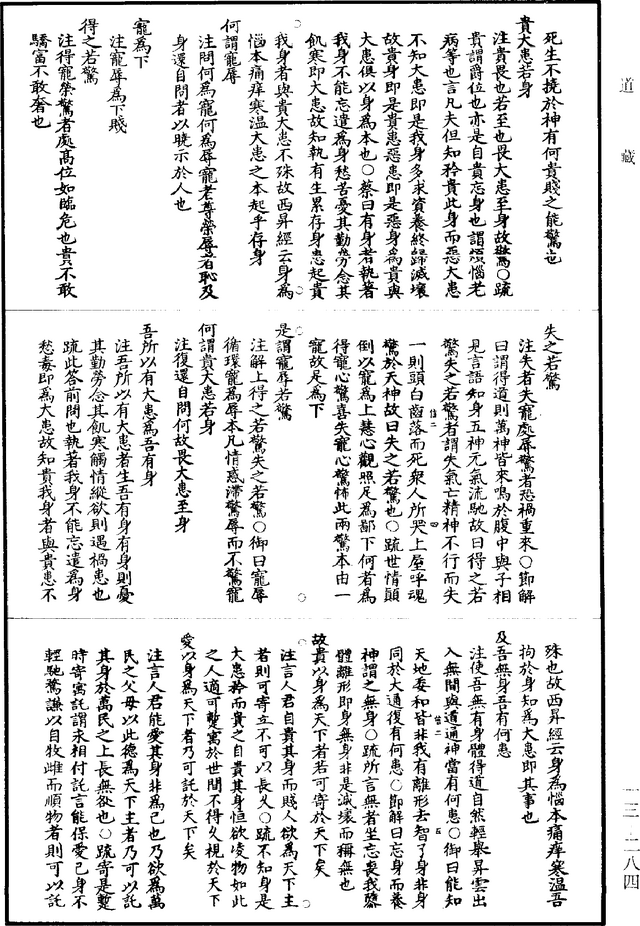 道藏
死生不撓於神有何貴賤之能驚也
貴大患若身
注貴畏也若至也畏大患至身故驚○疏
貴謂爵位也亦是自貴忘身也謂煩惱老
病等也言凡夫但知矜貴此身而惡大患
不知大患即是我身多求資養終歸滅壞
故貴身即是貴患惡患即是惡身為貴與
大患俱以身為本也○蔡曰有身者執著
我身不能忘遣為身愁苦憂其勤勞念其
飢寒即大患故知執有生累存身患起貴
我身者與貴大患不殊故西昇經云身為
惱本痛痒寒溫大患之本起乎存身
何謂寵辱
注問何為寵何為辱寵者尊榮辱者恥及
身還自問者以曉示於人也
寵為下
注寵辱為下賤
得之若驚
注得寵榮驚者處高位如臨危也貴不敢
驕富不敢奢也
失之若驚
注失者失寵處辱驚者恐禍重來○節解
曰謂得道則萬神皆來鳴於腹中與子相
見言語知身五神元氣流馳故曰得之若
驚失之若驚者謂失氣亡精神不行而失
一則頭白齒落而死眾人所哭上屋呼魂
驚於天神故曰失之若驚也○疏世情顛
倒以寵為上慧心觀照足為鄙下何者為
得寵心驚喜失寵心驚怖此兩驚本由一
寵故足為下
是謂寵辱若驚
注解上得之若驚失之若驚○御曰寵辱
循環寵為辱本凡情惑滯驚辱而不驚寵
何謂貴大患若身
注復還自問何故畏大患至身
吾所以有大患為吾有身
注吾所以有大患者生吾有身有身則憂
其勤勞念其飢寒觸情縱欲則遇禍患也
疏此答前問也執著我身不能忘遣為身
愁毒即為大患故知貴我身者與貴患不
殊也故西昇經云身為惱本痛痒寒溫吾
拘於身知為大患即其事也
及吾無身吾有何患
注使吾無有身體得道自然輕舉昇雲出
入無間與道通神當有何患○御曰能知
天地委和皆非我有離形去智了身非身
同於大通復有何患○節解曰忘身而養
神謂之無身○疏所言無者坐忘喪我隳
體離形即身無身非是滅壞而稱無也
故貴以身為天下者若可寄於天下矣
注言人君自貴其身而賤人欲為天下主
者則可寄立不可以長久○疏不知身是
大患矜而貴之自貴其身恒欲凌物如此
之人適可蹔寓於世間不得久視於天下
愛以身為天下者乃可託於天下矣
注言人君能愛其身非為己也乃欲為萬
民之父母以此德為天下主者乃可以託
其身於萬民之上長無咎也○疏寄是蹔
時寄寓託謂永相付託言能保愛己身不
輕馳騖謙以自牧雌而順物者則可以託
一三－二八四